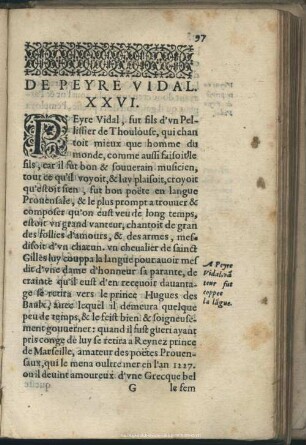 97
DE PEYRE VIDAL.
XXVI.
PEyre Vidal, fut fils d'vn Pel-
lissier de Thoulouse, qui chan
toit mieux que homme du
monde, comme aussi faisoit le
fils, car il fut bon & souuerain musicien,
tout ce qu'il voyoit, & luy plaisoit, croyoit
qu'estoit sien, fut bon poëte en langue
Prouensale, & le plus prompt a trouuer &
composer qu'on eust veu de long temps,
estoit vn grand vanteur, chantoit de gran
des follies d'amours, & des armes, mes-
disoit d'vn chacun. vn cheualier de sainct
Gilles luy couppa la langue pour auoir mes
dit d'vne dame d'honneur sa parante, de
crainte qu'il eust d'en reçeuoir dauanta-
ge se retira vers le prince Hugues des
Baulx, auec lequel il demeura quelque
peu de temps, & le feist bien & soigneuse-
ment gouuerner: quand il fust guery ayant
pris congé de luy se retira a Reynez prince
de Marseille, amateur des poëtes Prouen-
saux, qui le mena oultre mer en l'an 1227.
ou il deuint amoureux d'vne Grecque bel
G le sem
A Peyre
Vidal la
lengue fut
couppé
la lãgue.